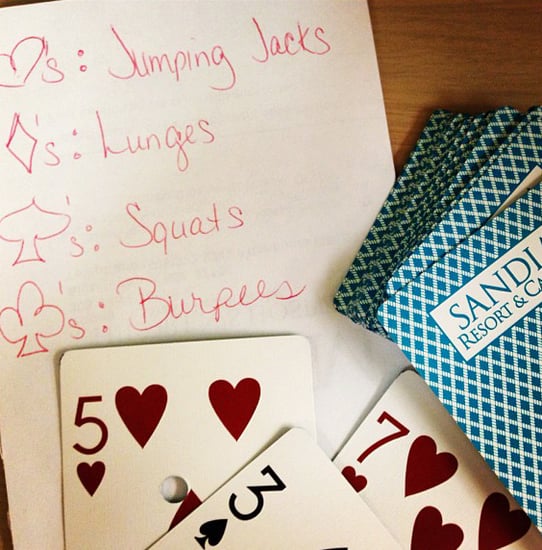 ♡'s: Jumping Jacks
♢'s: Lunges
♤'s: Squats
♧'s: Burpees
SANDIA
RESORT & CA
5
3
7